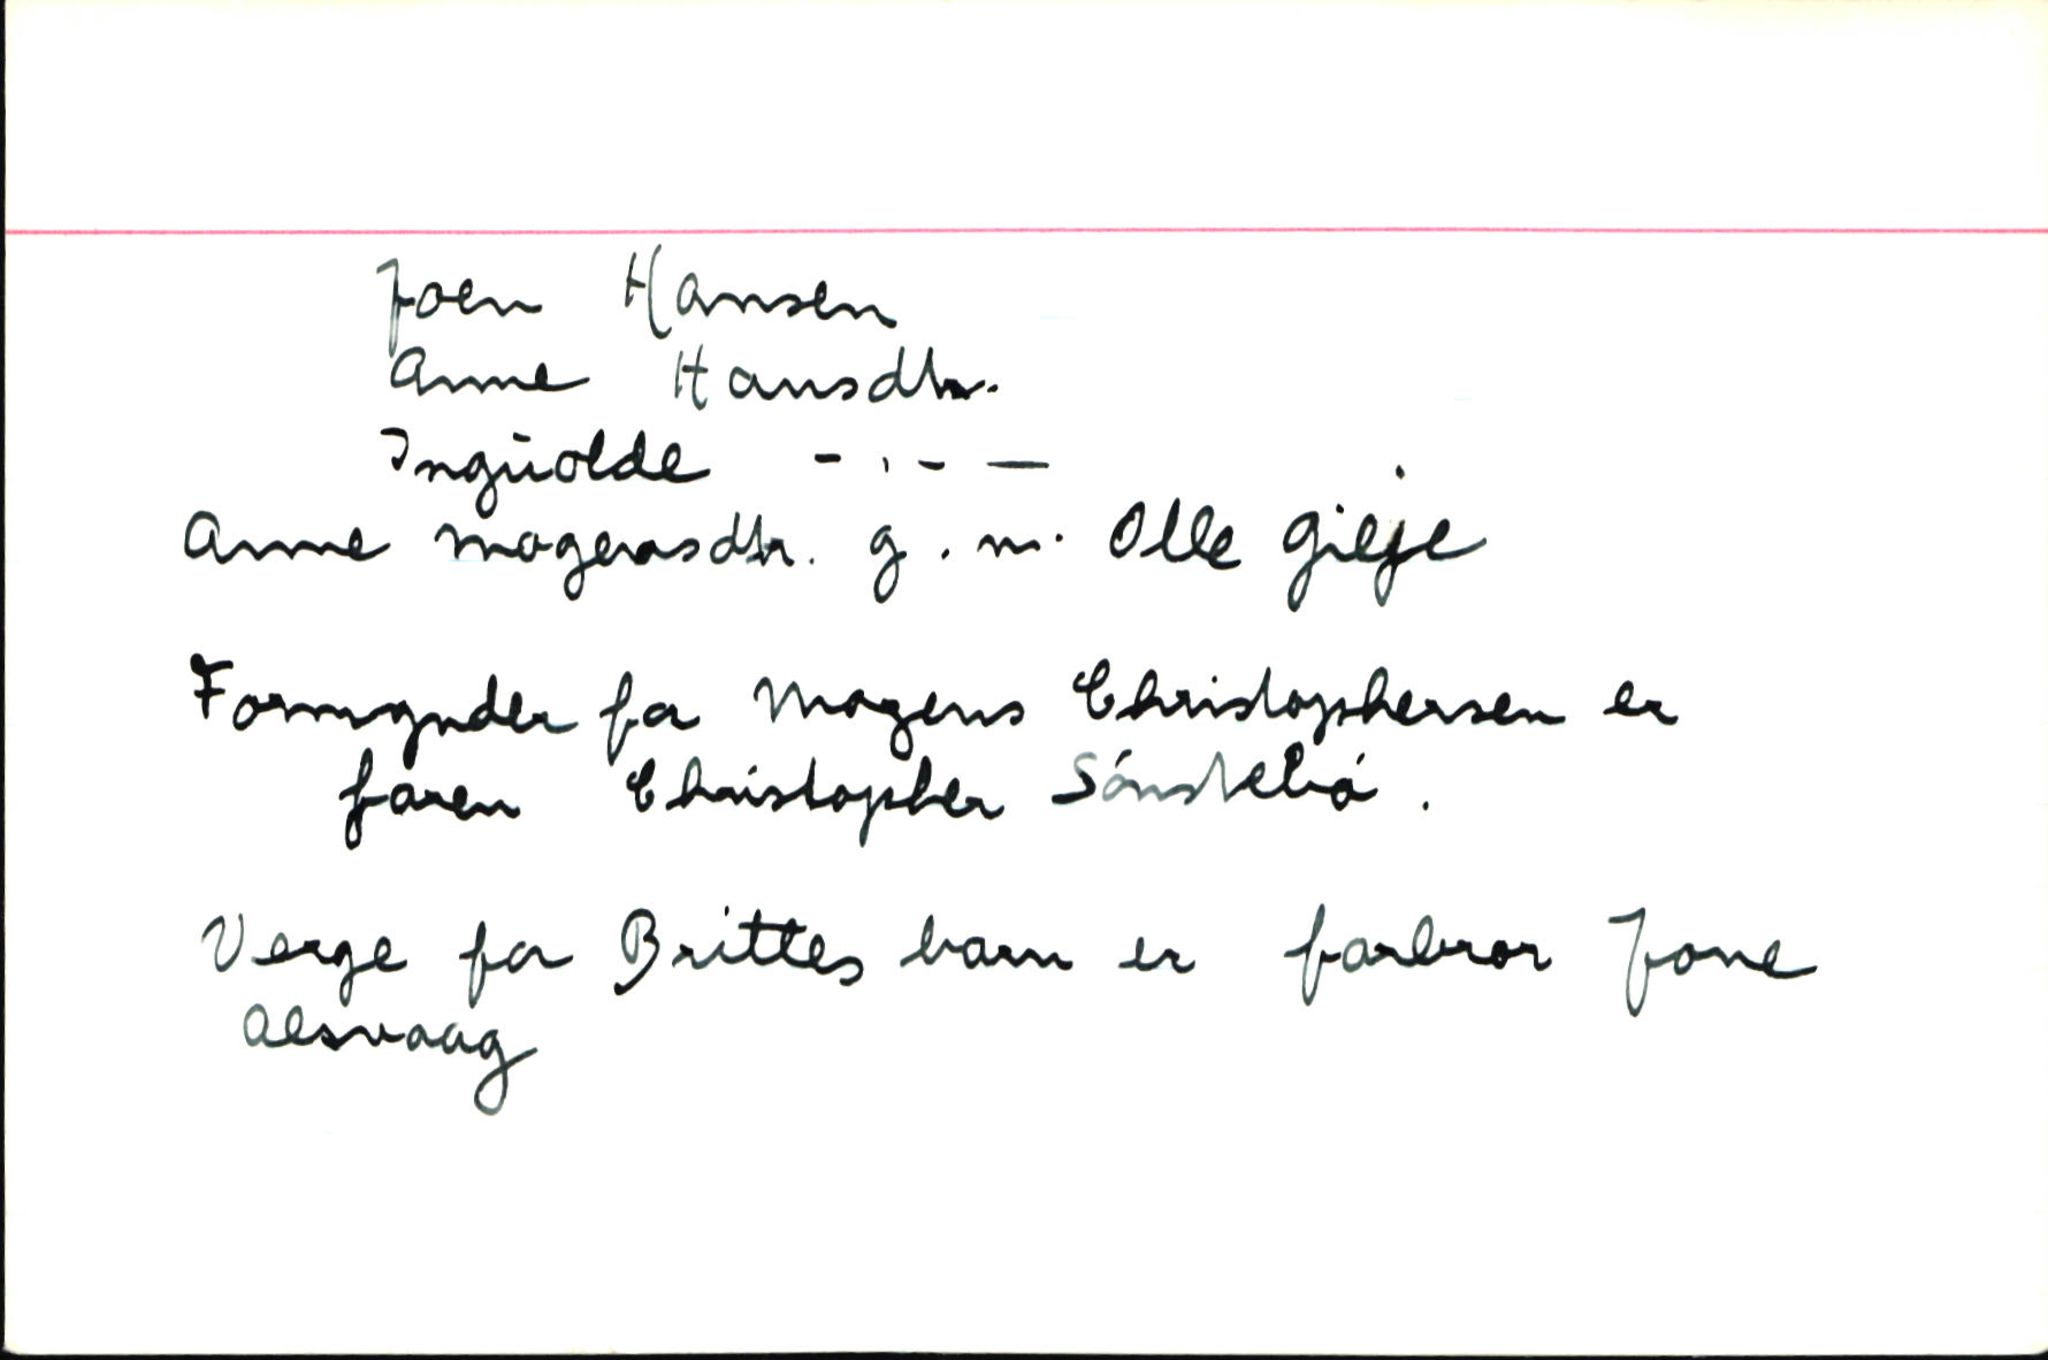 Joen Hansen
Anne Hansdtr.
Ingüolde - , - —
Anne Mogensdtr. g. m. Olle Gilje
Formynder for Mogens Christophersen er
faren Christopher Sønstebø.
Verge for Brittes barn er farbror Jone
Alsvaag